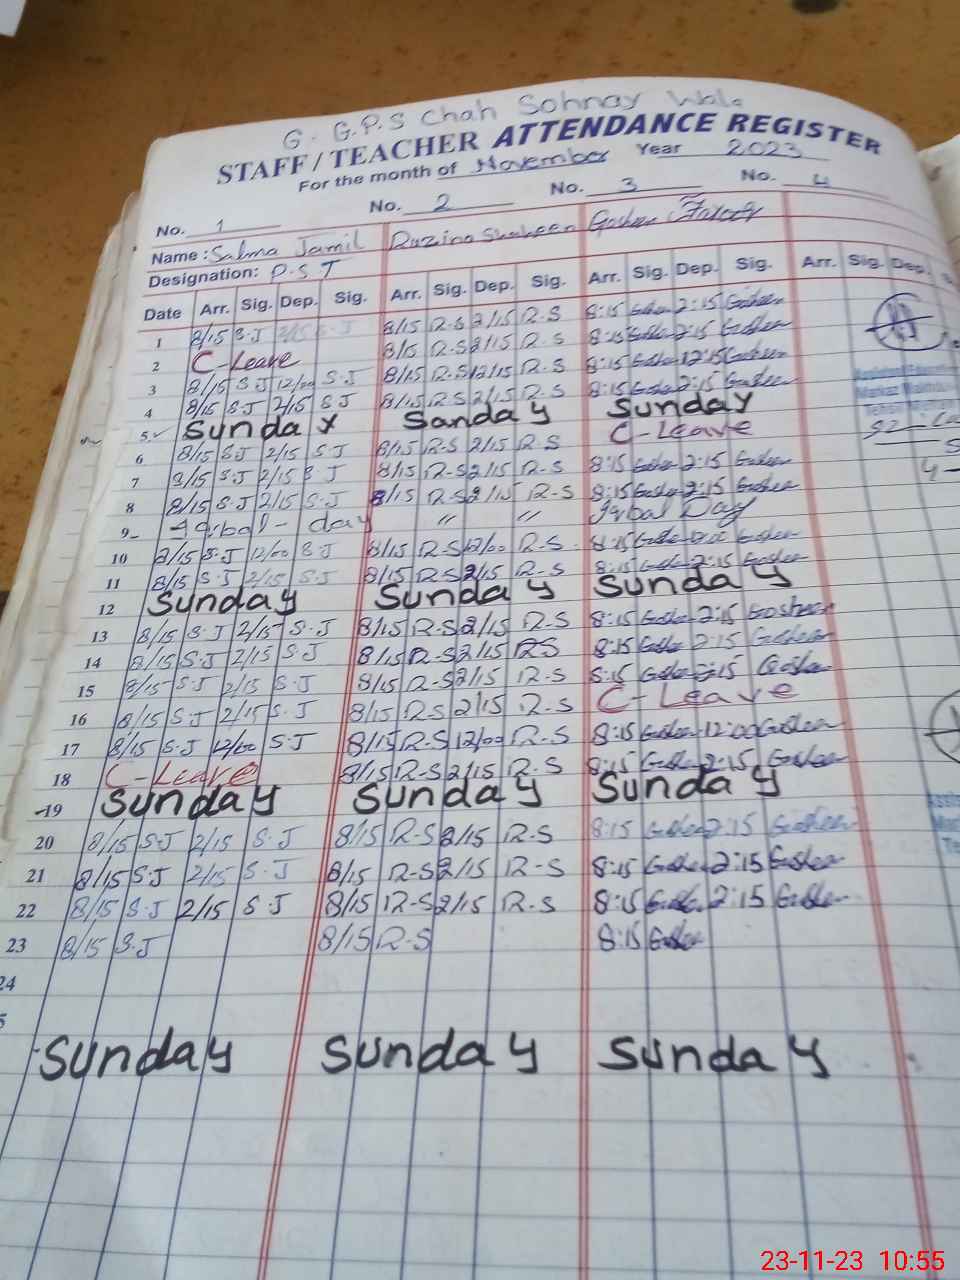 G. G.P.S Chah Sohnay Wala
STAFF / TEACHER ATTENDANCE REGISTER
For the month of November Year 2023
No. 1 No. 2 No. 3 No. 4
Name : Salma Jamil Ruzina Shaheen Goshen
Designation: P.S.T
Date Arr. Sig. Dep. Sig. Arr. Sig. Dep. Sig. Arr. Sig. Dep. Sig. Arr. Sig. Dep.
1 8/15 S.J 2/15 S.J 8/15 R-S 2/15 R-S 8:15 Goshen 2:15 Goshen
2 C-Leave 8/15 R-S 2/15 R-S 8:15 Goshen 2:15 Goshen
3 8/15 S.J 12/00 S.J 8/15 R-S 12/15 R-S 8:15 Goshen 12:15 Goshen
4 8/15 S.J 2/15 S.J 8/15 R-S 2/15 R-S 8:15 Goshen 2:15 Goshen
5 Sunday Sanday Sunday
6 8/15 S.J 2/15 S.J 8/15 R-S 2/15 R-S C-Leave
7 8/15 S.J 2/15 S.J 8/15 R-S 2/15 R-S 8:15 Goshen 2:15 Goshen
8 8/15 S.J 2/15 S.J 8/15 R-S 2/15 R-S 8:15 Goshen 2:15 Goshen
9 Iqbal - day " " Iqbal Day
10 8/15 S.J 12/00 S.J 8/15 R-S 12/00 R-S 8:15 Goshen Goshen
11 8/15 S.J 2/15 S.J 8/15 R-S 2/15 R-S 8:15 Goshen 2:15 Goshen
12 Sunday Sunday Sunday
13 8/15 S.J 2/15 S.J 8/15 R-S 2/15 R-S 8:15 Goshen 2:15 Goshen
14 8/15 S.J 2/15 S.J 8/15 R-S 2/15 RS 8:15 Goshen 2:15 Goshen
15 8/15 S.J 2/15 S.J 8/15 R-S 2/15 R-S 8:15 Goshen 2:15 Goshen
16 8/15 S.J 2/15 S.J 8/15 R-S 2/15 R-S C-Leave
17 8/15 S.J 12/00 S.J 8/15 R-S 12/00 R-S 8:15 Goshen 12:00 Goshen
18 C-Leave 8/15 R-S 2/15 R-S 8:15 Goshen 2:15 Goshen
19 Sunday Sunday Sunday
20 8/15 S.J 2/15 S.J 8/15 R-S 2/15 R-S 8:15 Goshen 2:15 Goshen
21 8/15 S.J 2/15 S.J 8/15 R-S 2/15 R-S 8:15 Goshen 2:15 Goshen
22 8/15 S.J 2/15 S.J 8/15 R-S 2/15 R-S 8:15 Goshen 2:15 Goshen
23 8/15 S.J 8/15 R-S 8:15 Goshen
24
5
Sunday Sunday Sunday
23-11-23 10:55